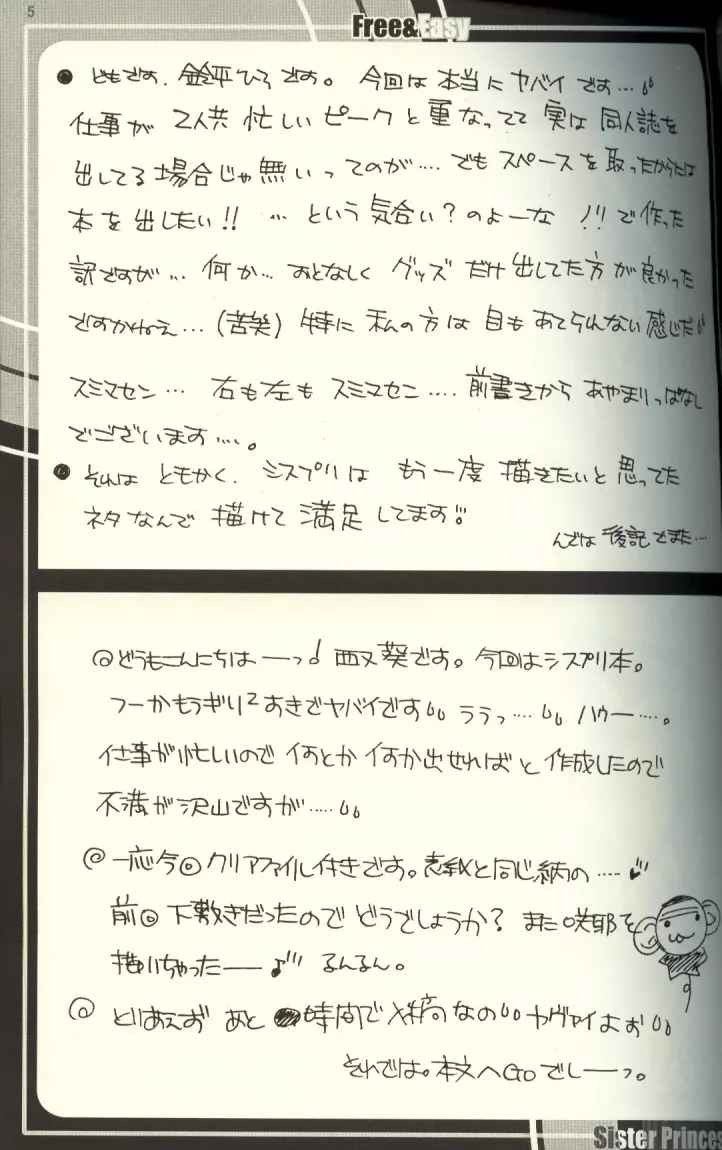 5
Free&Easy
● ともです、鈴平ひろです。今回は本当にヤバイです…
仕事が2人共忙しいピークと重なってて実は同人誌を
出してる場合じゃ無いってのが…. でもスペースを取ったからには
本を出したい!! … という気合い?のよーな ノリで作った
訳ですが… 何か… おとなしく グッズだけ出してた方が良かった
ですかねぇ…(苦笑) 特に私の方は目もあてられない感じだ
スミマセン… 右も左もスミマセン…. 前書きからあやまりっぱなし
でございます….。
● それはともかく、シスプリはもう一度描きたいと思ってた
ネタなんで描けて満足してます!!
んでは後記でまた…
@どうもこんにちはーっ♪ 西又葵です。今回はシスプリ本。
つーかもうぎり2あきでヤバイです ううっ…. ハウー….。
仕事が忙しいので何とか何か出せればと作成したので
不満が沢山ですが…..
@一応今回クリアファイル付きです。表紙と同じ絵柄の….
前回下敷きだったのでどうでしょうか? また咲耶を
描いちゃったー♪ るんるん。
@ とりあえずあと 時間で入稿なの ヤヴァイよお
それでは。本文へGoでしーっ。
Sister Princes